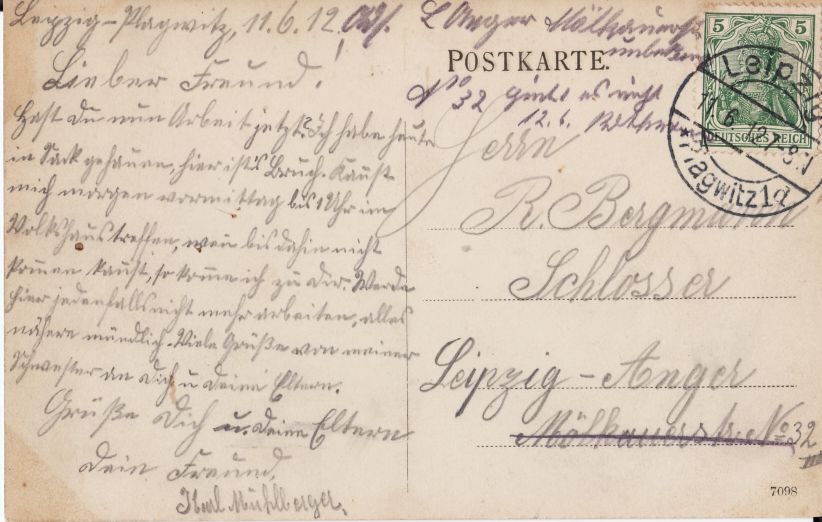 Leipzig-Plagwitz, 11.6.12.
Lieber Freund!
Hast Du nun Arbeit jetzt? Ich habe heute
in Sack gehauen, hier ists Bruch. Kannst
mich morgen vormittag bis 1 Uhr im
Volkshaus treffen, wenn bis dahin nicht
kommen kannst, so komme ich zu Dir. Werde
hier jedenfalls nicht mehr arbeiten, alles
nähere mündlich. Viele Grüße von meiner
Schwester an Dich u Deine Eltern.
Grüße Dich u. Deine Eltern
Dein Freund,
Karl Mühlberger.
L Anger Mölkauerstr
unbekannt
No 32 giebt es nicht
12.6.
POSTKARTE.
Herrn
R. Bergmann
Schlosser
Leipzig-Anger
Mölkauerstr. No 32
5 5
DEUTSCHES REICH
Leipzig
11.6.12.
* Plagwitz 1d
7098